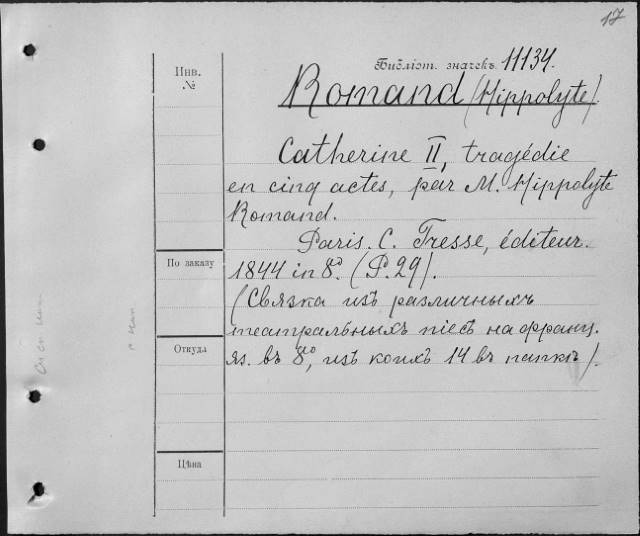 17
Инв.
№
Библіот. значекъ 11134.
Romand (Hippolyte).
Catherine II, tragédie
en cinq actes, par M. Hippolyte
Romand.
Paris. C. Tresse, éditeur.
1844 in 8º. (P. 29).
(Связка изъ различныхъ
театральныхъ піесъ на франц.
яз. въ 8º, изъ коихъ 14 въ папкѣ).
По заказу
Откуда
Цѣна